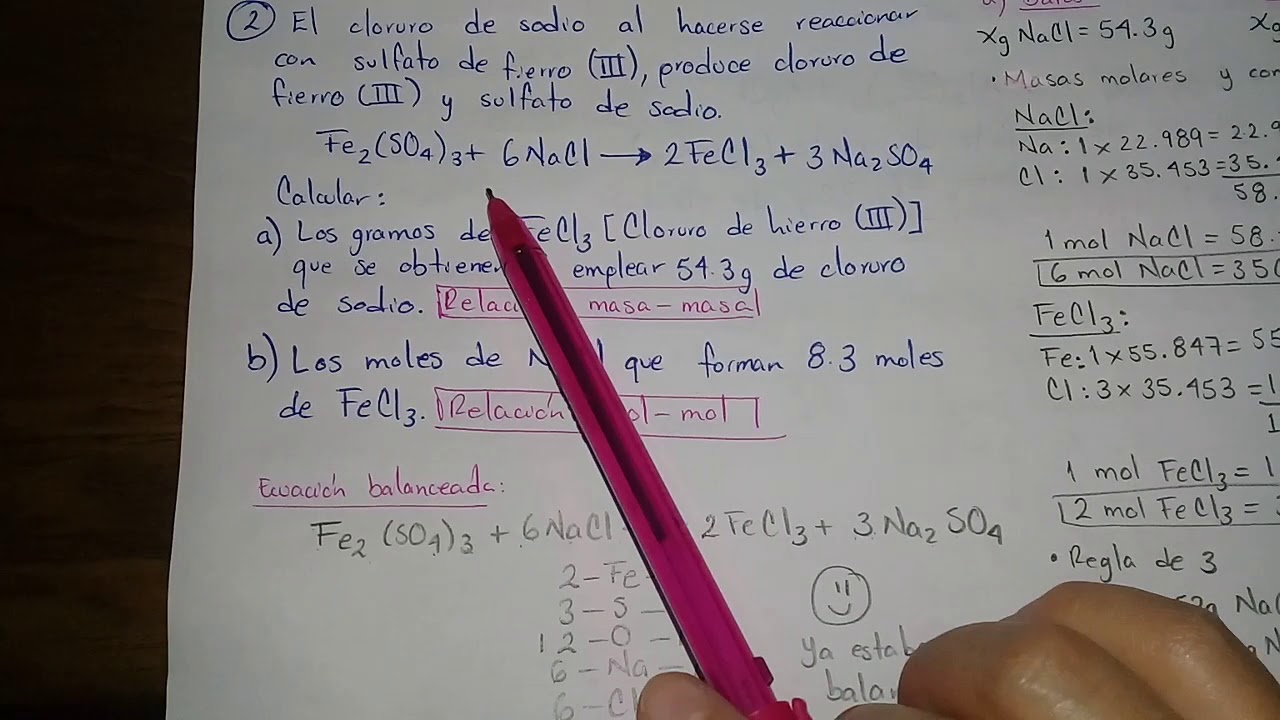 ② El cloruro de sodio al hacerse reaccionar
con sulfato de fierro (III), produce cloruro de
fierro (III) y sulfato de sodio.
Fe₂(SO₄)₃ + 6NaCl → 2FeCl₃ + 3Na₂SO₄
Calcular:
a) Los gramos de FeCl₃ [Cloruro de hierro (III)]
que se obtiene emplear 54.3g de cloruro
de sodio. masa-masa
b) Los moles de que forman 8.3 moles
de FeCl₃. Relación mol-mol
Ecuación balanceada:
Fe₂(SO₄)₃ + 6NaCl 2FeCl₃ + 3Na₂SO₄
2-Fe-
3-S-
12-O-
6-Na-
6-Cl
ya
Xg NaCl = 54.3g
• Masas molares y
NaCl:
Na: 1 x 22.989 = 22.9
Cl: 1 x 35.453 = 35.
58.
1 mol NaCl = 58.
6 mol NaCl = 350
FeCl₃:
Fe: 1 x 55.847 = 55
Cl: 3 x 35.453 = 1
1
1 mol FeCl₃ = 1
2 mol FeCl₃ =
• Regla de 3
Xg